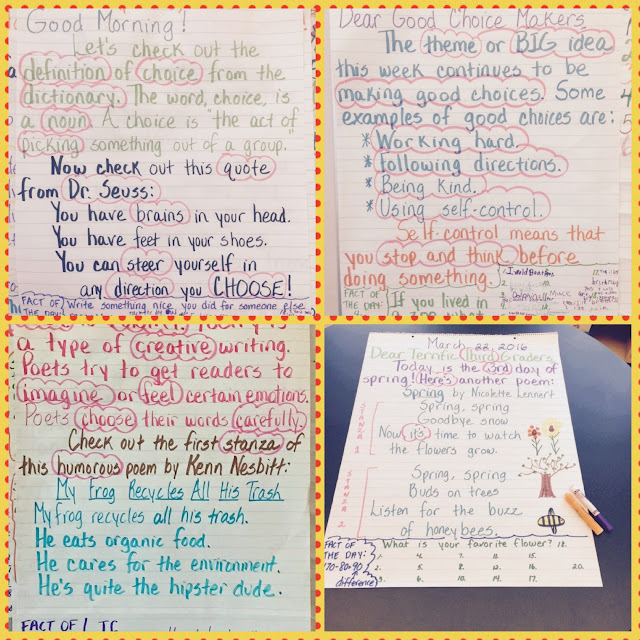 Good Morning!
Let's check out the
definition of choice from the
dictionary. The word, choice, is
a noun. A choice is "the act of
picking something out of a group."
Now check out this quote
from Dr. Seuss:
You have brains in your head.
You have feet in your shoes.
You can steer yourself in
any direction you CHOOSE!
FACT OF THE DAY:
Write something nice you did for someone else.
Dear Good Choice Makers
The theme or BIG idea
this week continues to be
making good choices. Some
examples of good choices are:
* Working hard.
* following directions.
* Being Kind.
* Using self-control.
Self-control means that
you stop and think before
doing something.
FACT OF
THE DAY:
If you lived in
a type of creative writing.
Poets try to get readers to
imagine or feel certain emotions.
Poets choose their words carefully.
Check out the first stanza of
this humorous poem by Kenn Nesbitt:
My Frog Recycles All His Trash
My frog recycles all his trash.
He eats organic food.
He cares for the environment.
He's quite the hipster dude.
FACT OF
March 22, 2016
Dear Terrific Third Graders,
Today is the 3rd day of
spring! Here's another poem:
Spring by Nicolette Lennert
STANZA 1
Spring, spring
Goodbye snow
Now it's time to watch
the flowers grow.
STANZA 2
Spring, spring
Buds on trees
Listen for the buzz
of honey bees.
FACT OF
THE DAY:
70-80-90
difference
What is your favorite flower? 18.
1. 4. 7. 11. 15.
2. 5. 8. 12. 16. 20.
3. 6. 10. 14. 17.